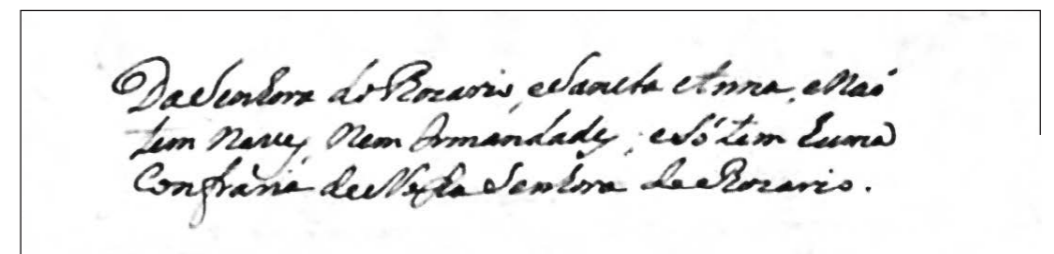 Da Senhora do Rozario, e Sancta Anna, e Naó
tem Naves, Nem Irmandades, e Só tem huma
Confraria de Nossa Senhora do Rozario.